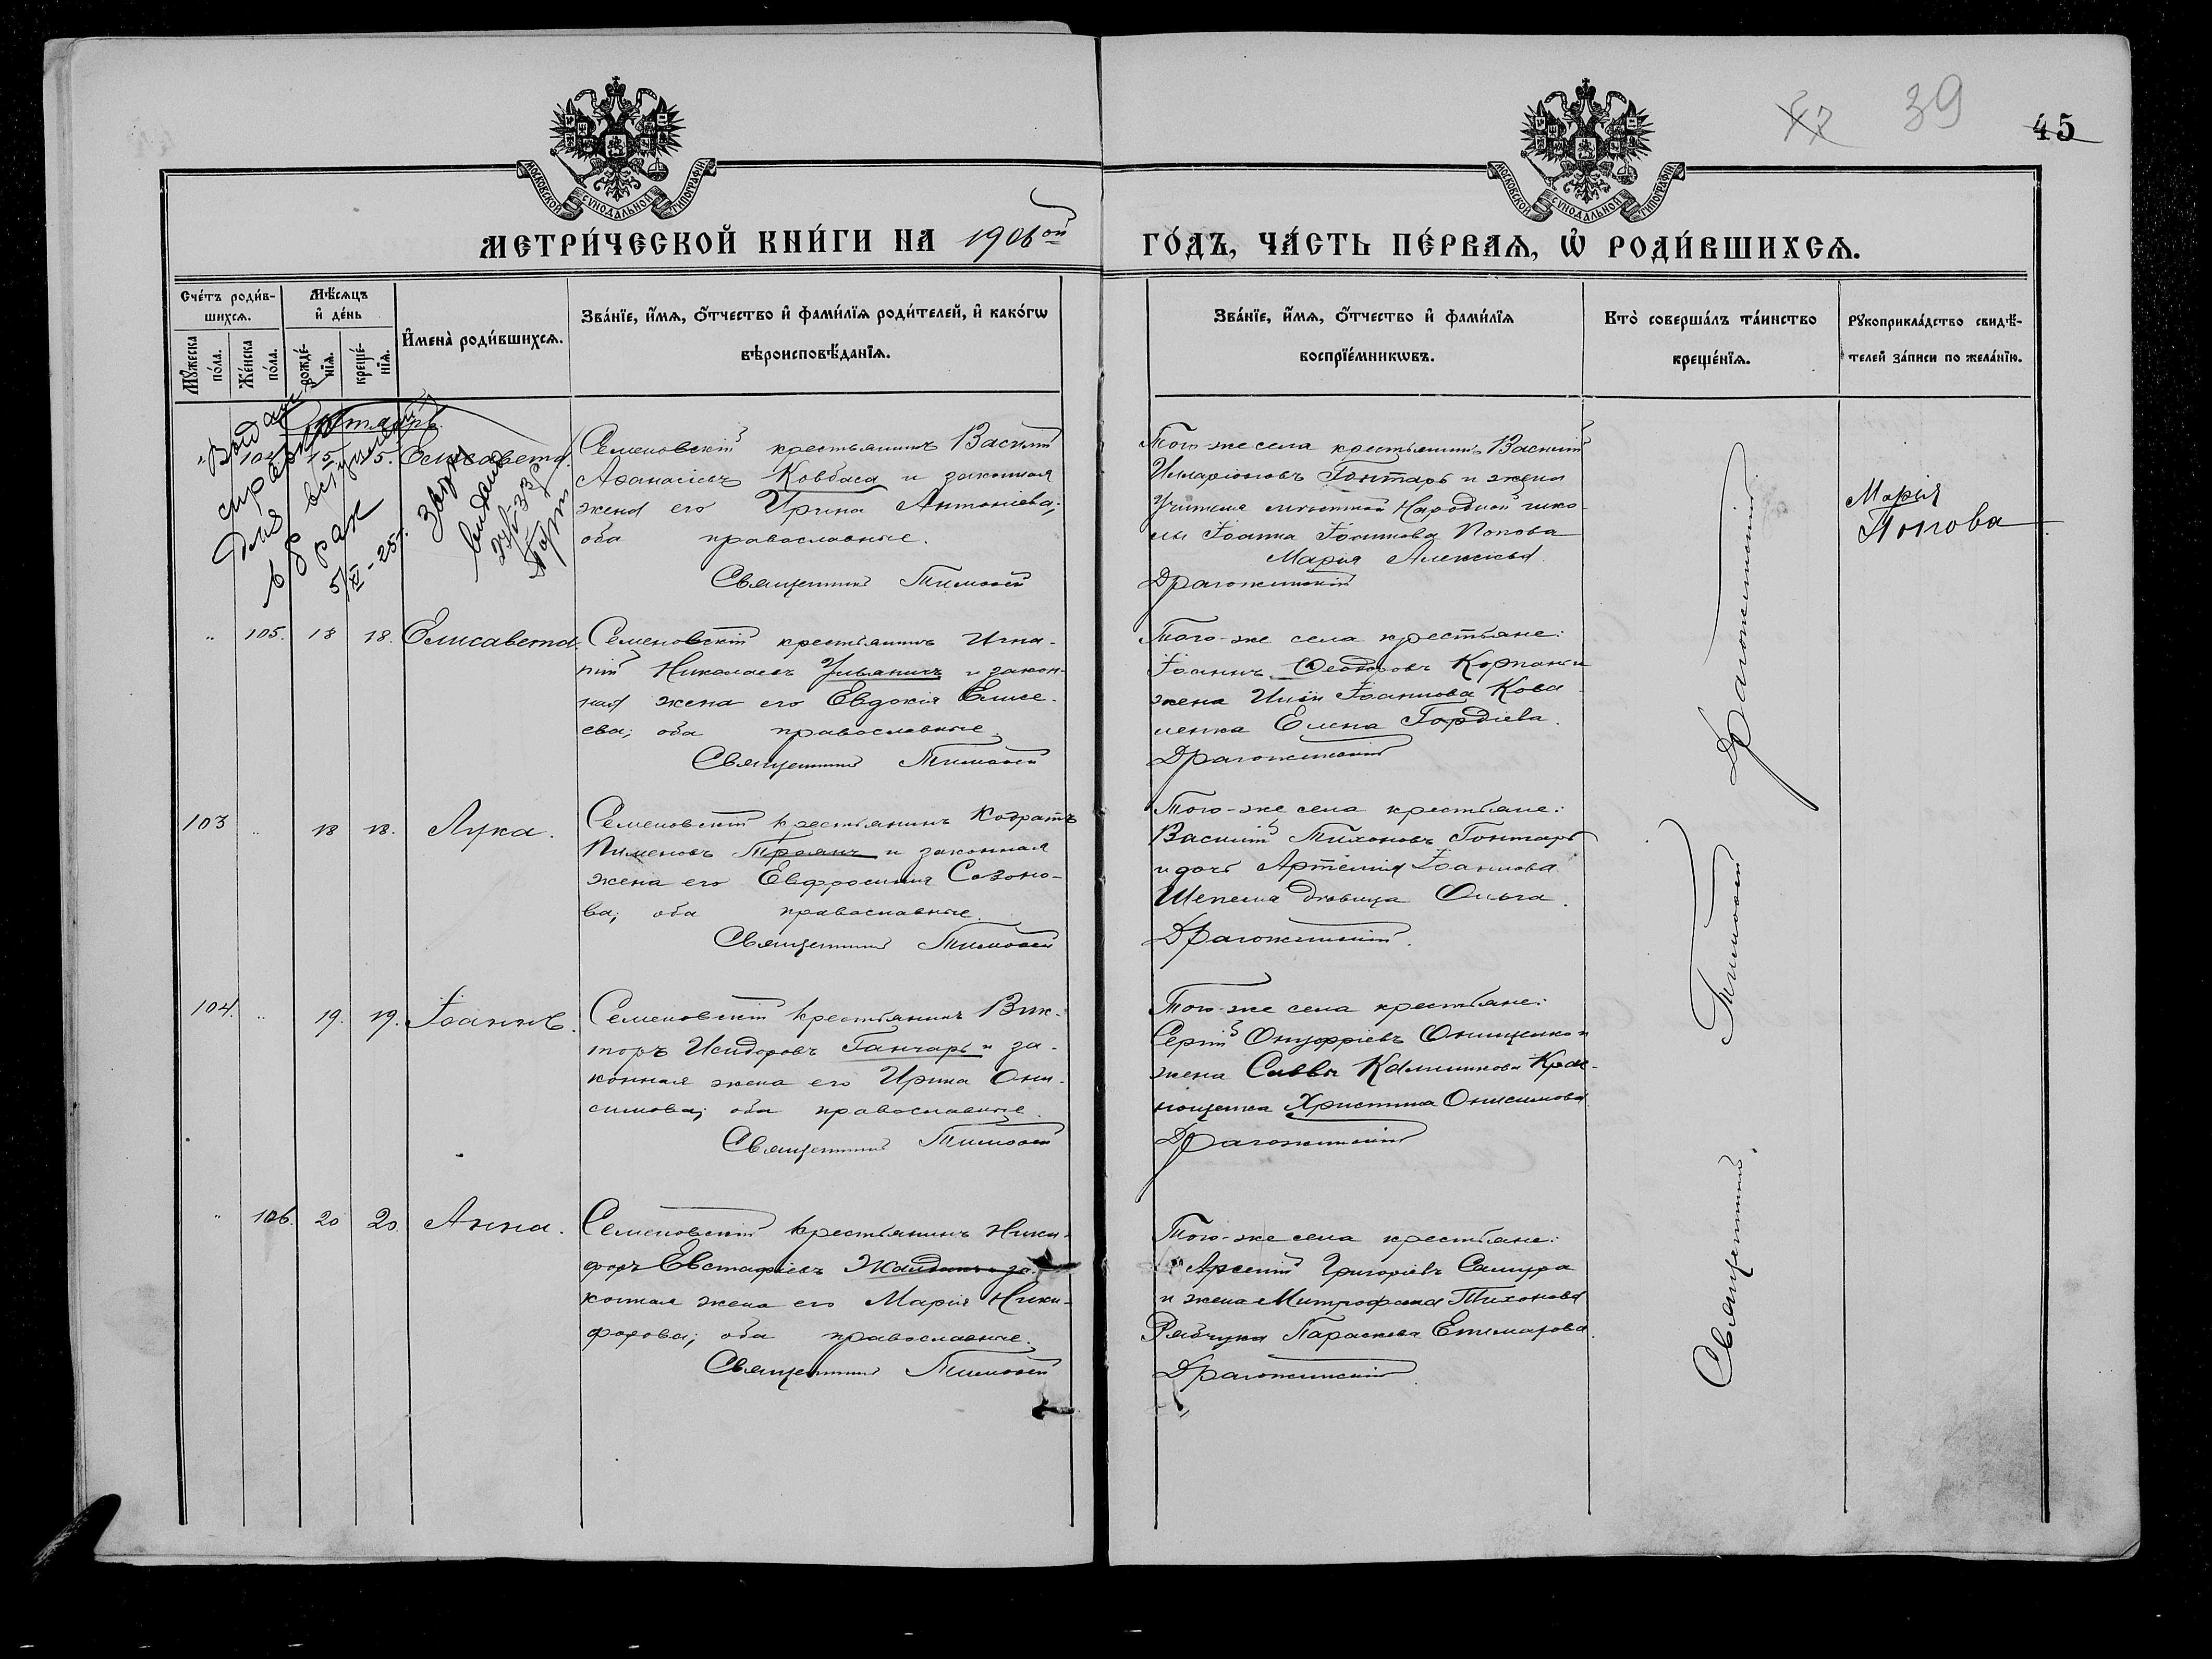 39
45
МОСКОВСКОЙ СѴНОДАЛЬНОЙ ТИПОГРАФІИ
МОСКОВСКОЙ СѴНОДАЛЬНОЙ ТИПОГРАФІИ
МЕТРИ́ЧЕСКОЙ КНИ́ГИ НА 1906ой
ГО́ДЪ, ЧА́СТЬ ПЕ́РВАѦ, Ѡ҆ РОДИ́ВШИХСѦ.
Сче́тъ роди́в-
шихсѧ.
Мꙋжеска по́ла.
Же́нска по́ла.
Мѣ́сѧцъ
и҆ де́нь
рожде́-
нїѧ.
креще́-
нїѧ.
И҆мена̀ роди́вшихсѧ.
Зва́нїе, и҆́мѧ, ѻ҆́тчество и҆ фами́лїѧ роди́телей, и҆ како́гѡ
вѣроисповѣ́данїѧ.
Зва́нїе, и҆́мѧ, ѻ҆́тчество и҆ фами́лїѧ
воспрїе́мникѡвъ.
Кто̀ соверша́лъ та́инство
креще́нїѧ.
Рꙋкоприкла́дство свидѣ́-
телей за́писи по жела́нїю.
Октябрь
" 104 15 15. Елисавета.
Выдана
для вступления
в брак
5/XI-25г.
Семеновскій крестьянинъ Василій
Аѳанасіевъ Ковбаса и законная
жена его Ирина Антоніева;
оба православные.
Священникъ Тимоѳей
Того-же села крестьянинъ Василій
Илларіоновъ Гонтарь и жена
Учителя мѣстной Народной шко-
лы Іоанна Іоаннова Попова
Марія Алексіева.
Драгожинскій
Марія
Попова
" 105. 18 18. Елисавета.
Семеновскій крестьянинъ Игна-
тій Николаевъ Ульяничъ и закон-
ная жена его Евдокія Елисе-
ева; оба православные.
Священникъ Тимоѳей
Того-же села крестьяне:
Іоаннъ Ѳеодоровъ Корпань и
жена Иліи Іоаннова Кова-
ленка Елена Гордіева.
Драгожинскій
103 " 18 18. Лука.
Семеновскій крестьянинъ Кодратъ
Пименовъ Троянъ и законная
жена его Евфросинія Созоно-
ва; оба православные.
Священникъ Тимоѳей
Того-же села крестьяне:
Василій Тихоновъ Гонтарь
и дочь Артемія Іоаннова
Шепеля дѣвица Ольга.
Драгожинскій.
104. " 19. 19. Іоаннъ.
Семеновскій крестьянинъ Вик-
торъ Исидоровъ Ганчарь и за-
конная жена его Ирина Они-
симова; оба православные.
Священникъ Тимоѳей
Того-же села крестьяне:
Сергій Онуфріевъ Онищенко и
жена Саввы Калинникова Крас-
нощека Христина Онисимова
Драгожинскій
" 106. 20 20. Анна.
Семеновскій крестьянинъ Ники-
форъ Евстафіевъ Жалдакъ и за-
конная жена его Марія Ники-
форова; оба православные.
Священникъ Тимоѳей
Того-же села крестьяне:
Арсеній Григоріевъ Самура
и жена Митрофана Тихонова
Рябчука Параскева Епимахова.
Драгожинскій.
Священникъ Тимоѳей Драгожинскій